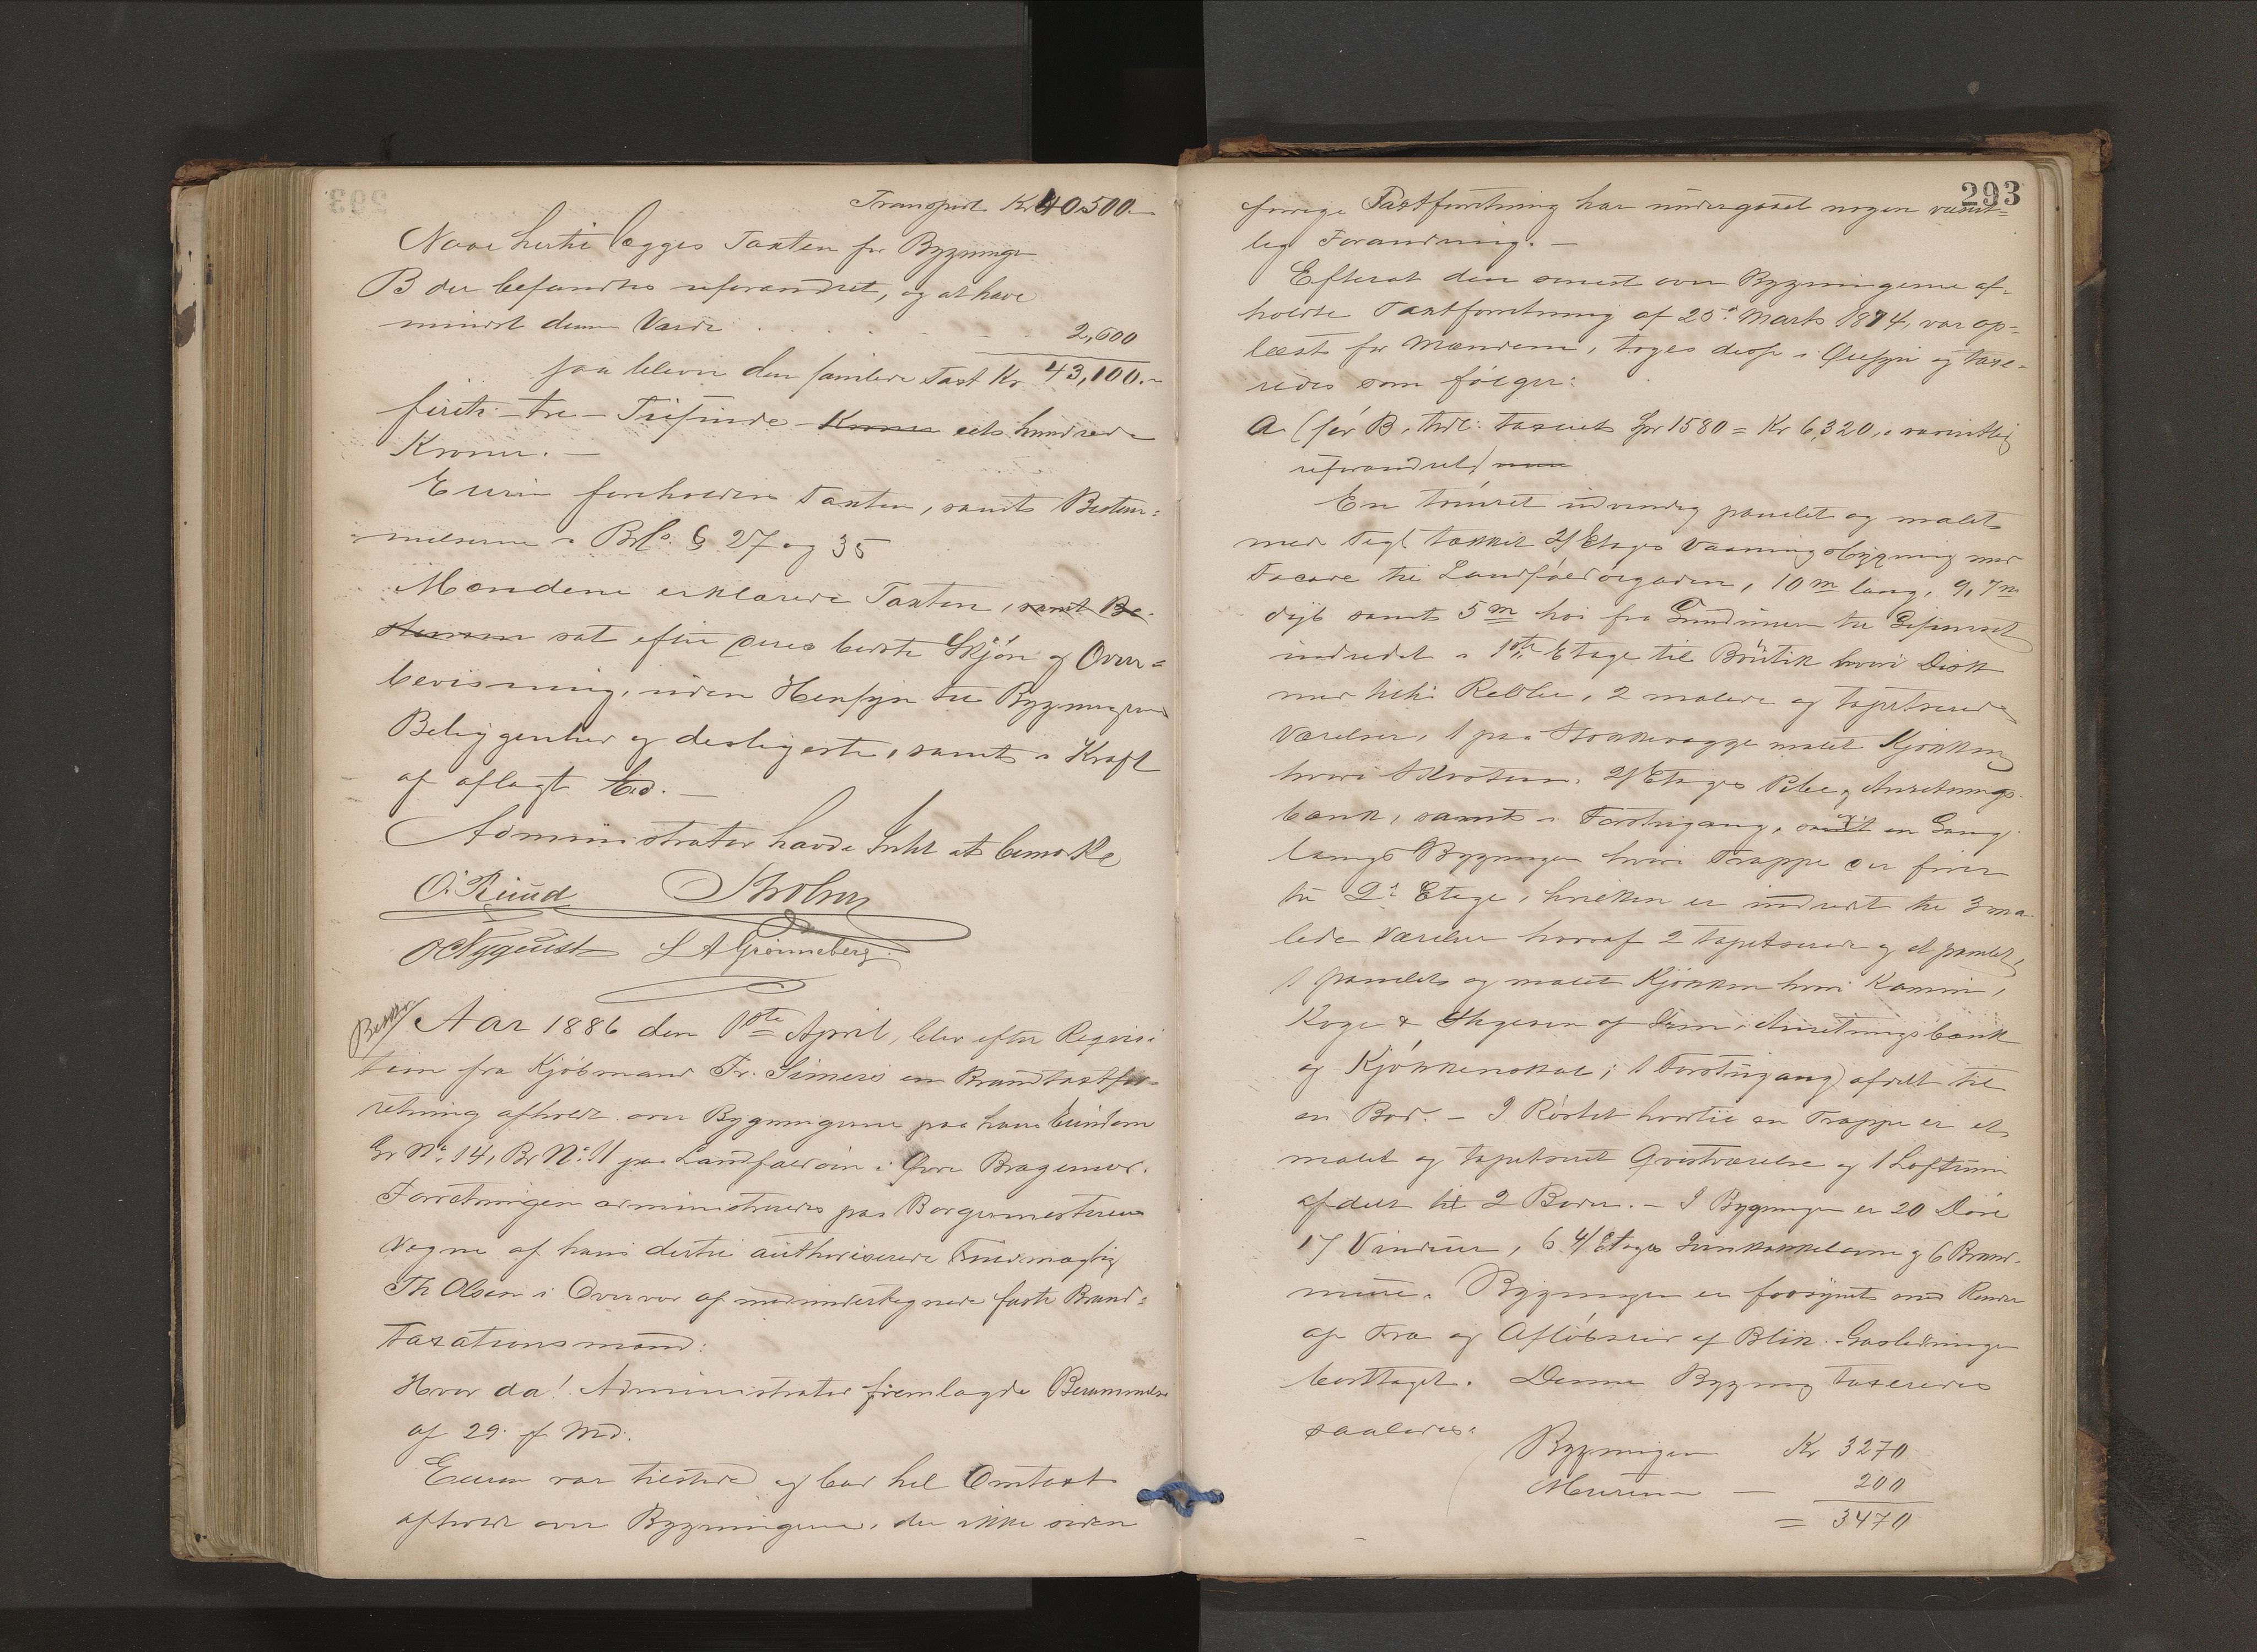 Transport Kr 40,500.—
Naar hertil lægges Taxten for Bygningen
B der befandtes uforandret, og at have
mindst denne Værdi . . . 2,600
saa bliver den samlede Taxt Kr 43,100.—
firti-tre-Tusinde Kroner eet hundrede
Kroner.—
Eieren foreholdtes Taxten, samt Bestem-
melserne i Brl. § 27 og 35
Mændene erklærede Taxten, samt Be-
stemm sat efter deres bedste Skjøn og Over-
bevisning, uden Hensyn til Bygningernes
Beliggenhed og desligeste, samt i Kraft
af aflagt Ed.—
Administrator havde Intet at bemærke
O. Ruud Th Olsen
O Nyquist L A Grønneberg
Aar 1886 den 1ste April, blev efter Requisi-
tion fra Kjøbmand Fr. Simers en Brandtaxtfor-
retning afholdt over Bygningerne paa hans Eiendom
Gr No. 14, Br No. 11 paa Landfaldøen i Øvre Bragernes.
Forretningen administreredes paa Borgermesterens
Vegne af hans dertil authoriserede Fuldmægtig
Th Olsen i Overvær af medundertegnede faste Brand-
taxationsmænd:
Hvor da! Administrator fremlagde Berammelse
af 29. f. Md.
Eieren var tilstede og bad hel Omtaxt
afholdt over Bygningerne, der ikke siden
293
forrige Taxtforretning har undergaaet nogen væsent-
lig Forandring.—
Efterat den senest over Bygningerne af-
holdte Taxtforretning af 25de Marts 1874, var op-
læst for Mændene, toges disse i Øiesyn og taxe-
redes som følger:
A (før B, taxeret Spd 1580 = Kr 6,320, væsentlig
uforandret)
En tømret udvendig panelet og malet
med Tegl tækket 2/Etages Vaaningsbygning med
Facade til Landfaldøgaden, 10 m lang, 9,7 m
dyb samt 5 m høi fra Grundmuren til Gesimset
indredet i 1ste Etage til Butik hvori Disk
med Reoler, 2 malede og tapetserede
Værelser, 1 paa Stokkevægge malet Kjøkken
hvori Skorsten, 2/Etages Pibe og Anretnings-
bænk, samt i Forstugang, samt en Gang
langs Bygningen hvori Trappe der fører
til 2. Etage, hvilken er indredet til 3 ma-
lede Værelser hvoraf 2 tapetserede og et panelet,
1 panelet og malet Kjøkken hvori Kamin,
Koge & Stegeovn af Jern, Anretningsbænk
og Kjøkkenskab; 1 Forstugang afdelt til
en Bod.— I Røstet hvortil en Trappe er et
malet og tapetseret Qvistværelse og 1 Loftsrum
afdelt til 2 Boder.— I Bygningen er 20 Døre
17 Vinduer, 6 4/Etages Jernkakkelovne og 6 Brand-
mure. Bygningen er forsynet med Render
af Træ og Afløbsrør af Blik. Gasledningen
borttaget. Denne Bygning taxeredes
saaledes:
Bygningen Kr 3270
Murene — 200
= 3470